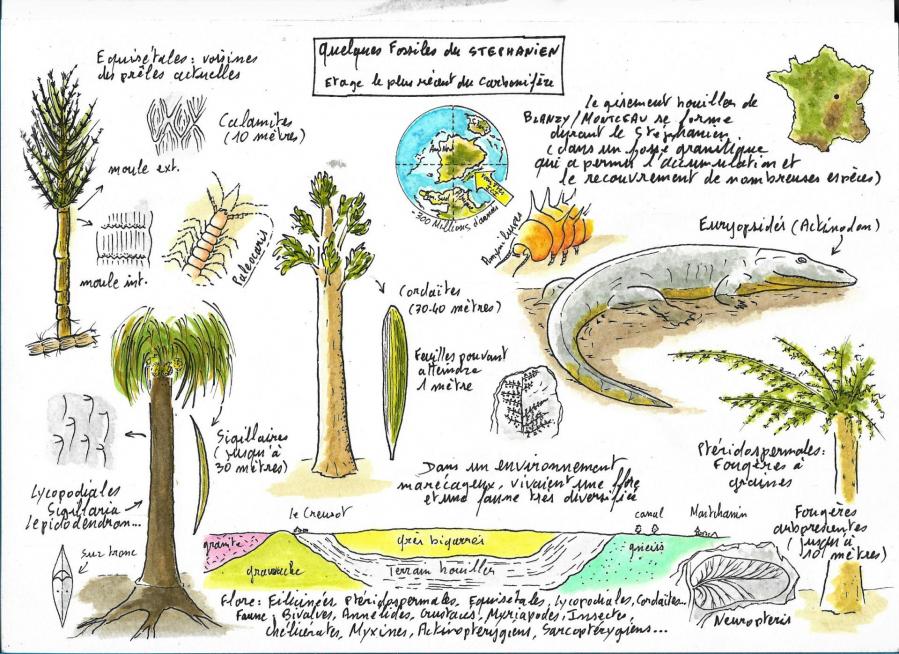 Quelques Fossiles du STEPHANIEN
Etage le plus récent du Carbonifère
Equisétales : voisines
des prêles actuelles
Calamites
(10 mètres)
moule ext.
moule int.
Paleocaris
Amérique
300 Millions d'années
le gisement houiller de
BLANZY/MONTCEAU se forme
durant le Stephanien
(dans un fossé granitique
qui a permis l'accumulation et
le recouvrement de nombreuses espèces)
Euryopsidés (Actinodon)
Cordaïtes
(30-40 mètres)
Feuilles pouvant
atteindre
1 mètre
Sigillaires
(jusqu'à
30 mètres)
Lycopodiales
Sigillaria
lepidodendron...
sur tronc
Dans un environnement
marécageux, vivaient une flore
et une faune très diversifiée
Ptéridospermales:
Fougères à
graines
Fougères
arborescentes
(jusqu'à
10 mètres)
le Creusot
canal
granite
grès bigarrés
gneiss
grauwacke
Terrain houiller
Neuropteris
Flore: Filicinées Ptéridospermales, Equisétales, Lycopodiales, Cordaïtes...
Faune; Bivalves, Annélides, Crustacés, Myriapodes, Insectes,
Chélicérates, Myxines, Actinoptérygiens, Sarcoptérygiens...